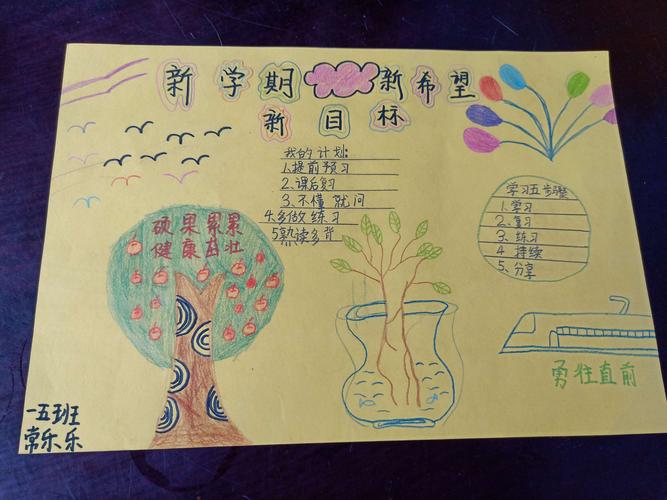 新学期 新希望
新目标
我的计划:
1.提前预习
2.课后复习
3、不懂就问
4.多做练习
5熟读多背
学习五步骤
1.学习
2.复习
3.练习
4 持续
5、分享
硕果累累
健康茁壮
勇往直前
一五班
常乐乐